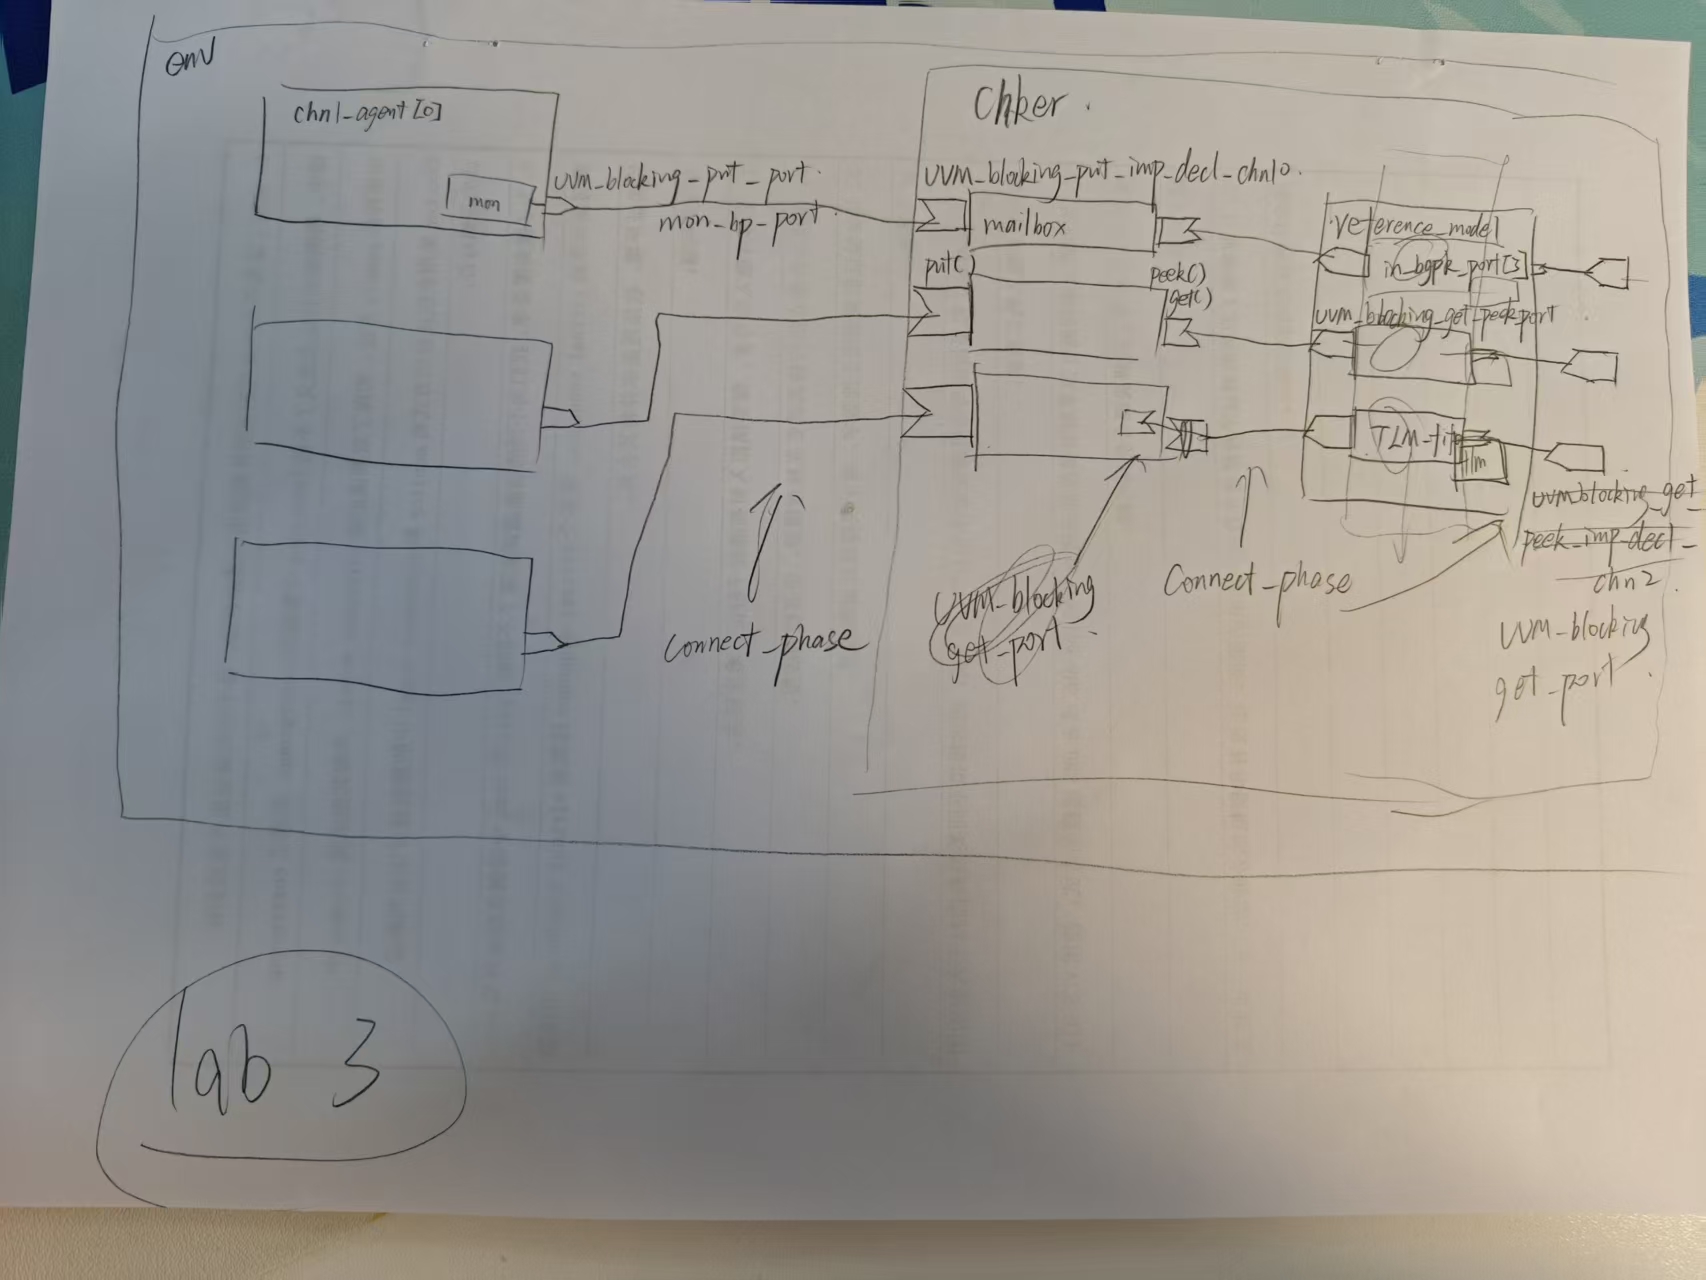 env
chnl-agent[0]
mon
uvm_blocking_put_port.
mon_bp_port
chker.
uvm_blocking_put_imp_decl_chnl0.
mailbox
put()
peek()
get()
reference_model
in_bgpk_port[3]
uvm_blocking_get_peek port
TLM-fifo
tlm
connect_phase
uvm_blocking
get_port
connect_phase
uvm blocking_get_
peek_imp_decl_
chn2
uvm_blocking
get_port.
lab 3